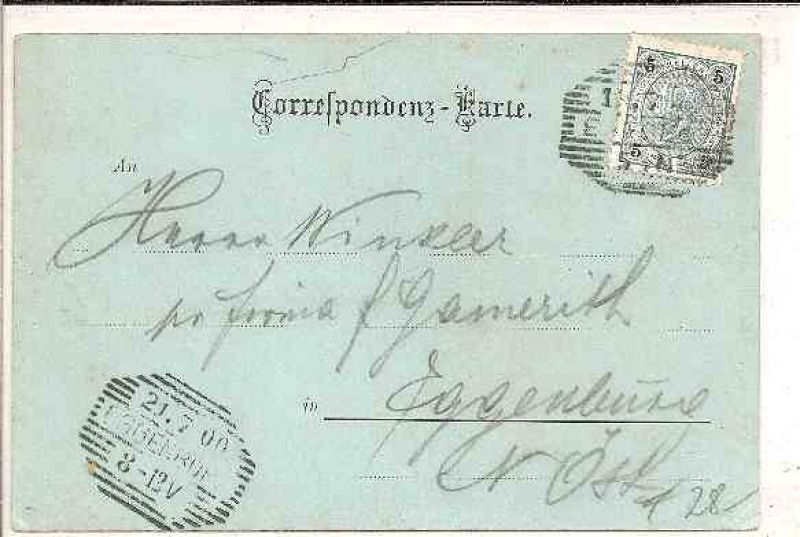 Correspondenz-Karte.
5 5
5
1
An
Herrn Winkler
pr firma J Gamerith
in Eggenburg
N Öst
28
21.7 00
EGGENBURG
8-12V